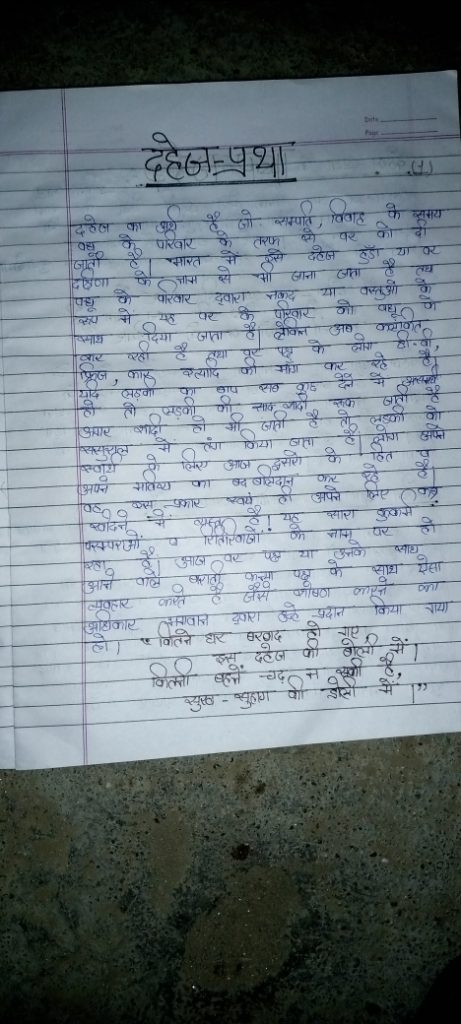 Date
Page
दहेज-प्रथा
(1)
दहेज का अर्थ है जो सम्पति, विवाह के समय
वधू के परिवार के तरफ से वर को दी
जाती है। भारत में इसे दहेज हुंडा या वर
दक्षिणा के नाम से भी जाना जाता है तथ
वधू के परिवार द्वारा नकद या वस्तुओं के
रूप में यह वर के परिवार को वधू के
साथ दिया जाता है। लेकिन अब
चार रही है तथा वर पक्ष के लोग टी.वी,
फ्रिज, कार इत्यादि की मांग कर रहे है।
यदि लड़की का बाप सब कुछ देने में असमर्थ
हो तो लड़की की शादी रूक जाती है
अगर शादी हो भी जाती है तो लड़की को
ससुराल में तंग किया जाता है। लोग अपने
स्वार्थ के लिए आज दूसरो के हित व
अपने भविष्य का बलिदान कर देते है
वह इस प्रकार स्वयं ही अपने लिए
खोदने में व्यस्त है। यह सारा कुकर्म
परम्पराओं व रितिरिवाजो के नाम पर हो
रहा है। आज वर पक्ष या उनके साथ
आने वाले बराती कन्या पक्ष के साथ ऐसा
व्यवहार करते है जैसे करने का
अधिकार भगवान द्वारा उन्हे प्रदान किया गया
हो। "कितने घर बरबाद हो गए,
इस दहेज की बोली में।
कितनी बहनें चढ़ न सकी है,
सुख-सुहाग की डोली में।"